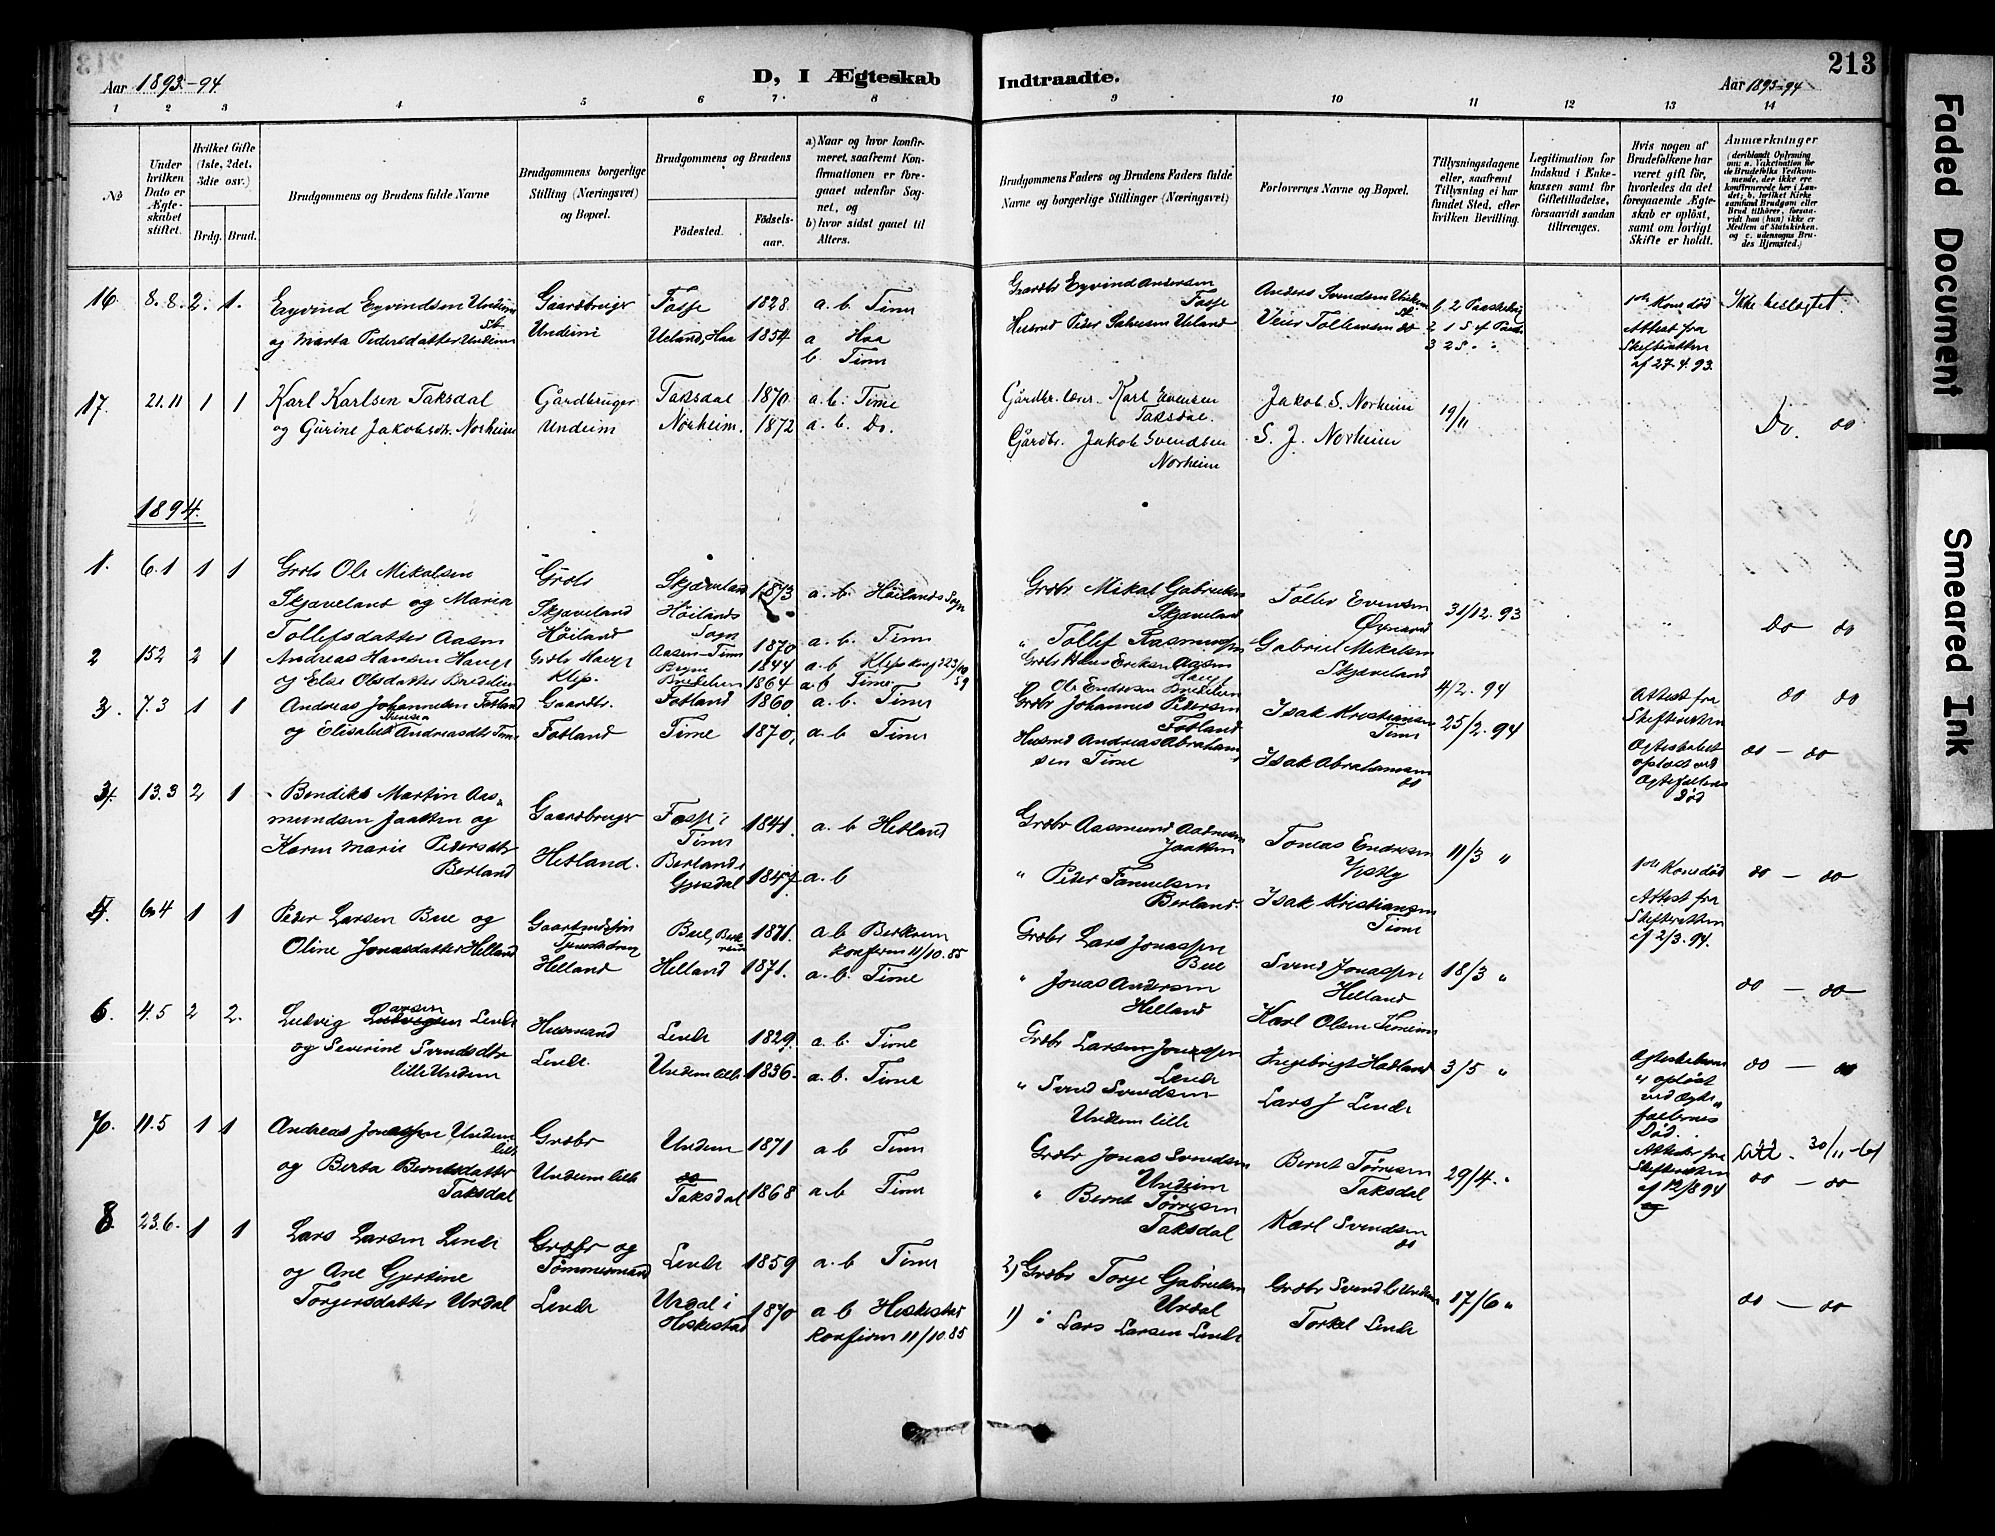 213
Aar 1893-94
D, I Ægteskab
Indtraadte.
Aar 1893-94
1 2 3 4 5 6 7 8 9 10 11 12 13 14
№
Under hvilken Dato er Ægteskabet stiftet.
Hvilket Gifte (1ste, 2det, 3die osv.)
Brdg. Brud.
Brudgommens og Brudens fulde Navne
Brudgommens borgerlige Stilling (Næringsvei) og Bopæl.
Brudgommens og Brudens
Fødested.
Fødselsaar.
a) Naar og hvor konfirmeret, saafremt Konfirmationen er foregaaet udenfor Sognet, og
b) hvor sidst gaaet til Alters.
Brudgommens Faders og Brudens Faders fulde Navne og borgerlige Stillinger (Næringsvei)
Forlovernes Navne og Bopæl.
Tillysningsdagene eller, saafremt Tillysning ei har fundet Sted, efter hvilken Bevilling.
Legitimation for Indskud i Enkekassen samt for Giftetilladelse, forsaavidt saadan tiltrænges.
Hvis nogen af Brudefolkene har været gift før, hvorledes da det foregaaende Ægteskab er opløst, samt om lovligt Skifte er holdt.
Anmærkninger
(deriblandt Oplysning om: a. Vaksination for de Brudefolks Vedkommende, der ikke ere konfirmerede her i Landet; b. hvilket Kirkesamfund Brudgom eller Brud tilhører, forsaavidt han (hun) ikke er Medlem af Statskirken, og c. udensogns Brudes Hjemsted.)
16 8.8. 2. 1. Eyvind Eyvindsen Undeim Gaardbruger Fosse 1828 a. b Time Gaardbr Eyvind Andersen Fosse Anders Svendsen Undeim 1, 2 Paaskedag 1ste Kones død Ikke beslægtet.
og Marta Pedersdatter Undeim Undeim Ueland, Haa 1854 a Haa b. Time Husmd Peder Salvesen Ueland Veier Tollevsen do 2 1 S ef Paaske 3 2 S " " Attest fra Skifteretten af 27.4.93.
17. 21.11 1 1 Karl Karlsen Taksdal Gårdbruger Taksdal 1870 a. b. Time Gårdbr. Karl Evensen Taksdal. Jakob S. Norheim 19/11
og Gurine Jakobsdtr. Norheim Undeim Norheim. 1872 a. b. Do. Gårdbr. Jakob Svendsen Norheim S. J. Norheim Do. do
1894.
1. 6.1 1 1 Grdbr Ole Mikalsen Grdbr Skjæveland 1873 a. b. Høilands Sogn Grdbr Mikal Gabrielsen Skjæveland Tollev Evensen 31/12.93
Skjæveland og Maria Skjæveland Høilands Sogn
Tollefsdatter Aasen Høiland Aasen-Time 1870 a. b. Time " Tollef Rasmussen Aasen Gabriel Mikalsen Skjæveland Do do
2 15.2 2 1 Andreas Hansen Hauge Grdbr Hauge 1844 a. b Klep Grdbr Hans Eriksen Hauge 4/2.94
og Else Olsdatter Bredelien Klep. Bredelien 1864 a b Time. Ole Endresen Bredelien Attest fra Skifteretten do do
3. 7.3 1 1 Andreas Johannesen Fotland Gaardbr. Fotland 1860. a. b. Time Grdbr Johannes Pedersen Fotland Isak Kristiansen Time 25/2.94
og Elisabeth Andreasdtr Time Fotland Time 1870, a. b Time Husmd Andreas Abrahamsen Time Isak Abrahamsen do Ægteskabet opløst ved Ægtefællens Død do — do
13.3 2 1 Bendik Martin Aasmundsen Jaatten og Gaardbruger Fosse i Time 1841. a. b Hetland Grdbr Aasmund Jaatten Tonnes Endresen 11/3 "
Karen Marie Pedersdtr Berland Hetland. Berland i Gjesdal 1847 a. b " Peder Samuelsen Berland. Isak Kristiansen Time 1ste Kones død Attest fra Skifteretten af 2/3.94. do — do
5. 6.4 1 1 Peder Larsen Bue og Bue, Berkreim 1871. a b Berkrem konfirm 11/10.85 Grdbr Lars Jonassen Bue Svend Jonassen Helland 18/3 "
Oline Jonasdatter Helland Helland Helland 1871. a. b. Time " Jonas Andersen Helland Karl Olsen do — do
6. 4.5 2 2. Ludvig Larsen Lende Husmand Lende 1829. a. b. Time Grdbr Larsen Jonassen Lende Ingebrigt Hadland 3/5 "
og Severine Svendsdtr lille Undem Lende. Undem lille 1836. a. b. Time " Svend Svendsen Undem lille Lars J Lende Ægteskaberne " opløst ved Ægtefællernes Død. Attester fra Skifteretten af 12/8 94 do — do
7. 11.5 1 1 Andreas Jonassen Undem lille Grdbr Undem 1871 a b Time Grdbr Jonas Svendsen Undeim Bernt Tørresen Taksdal 29/4. " Att. 30/11
og Berta Berntsdatter Taksdal Undeim lille do Taksdal 1868 a b Time " Bernt Tørresen Taksdal Karl Svendsen do do — do
8 23.6. 1 1 Lars Larsen Lende Grdbr og Tømmermand Lende 1859 a. b Time 2) Grdbr Torge Gabrielsen Urdal Grdbr Svend L Undem 17/6 "
og Ane Gjertine Torgersdatter Urdal Lende Urdal i Heskestad 1870 a b Heskestad Konfirm 11/10.85 1) " Lars Larsen Lende Torkel Lende do — do
Faded Document
Smeared Ink